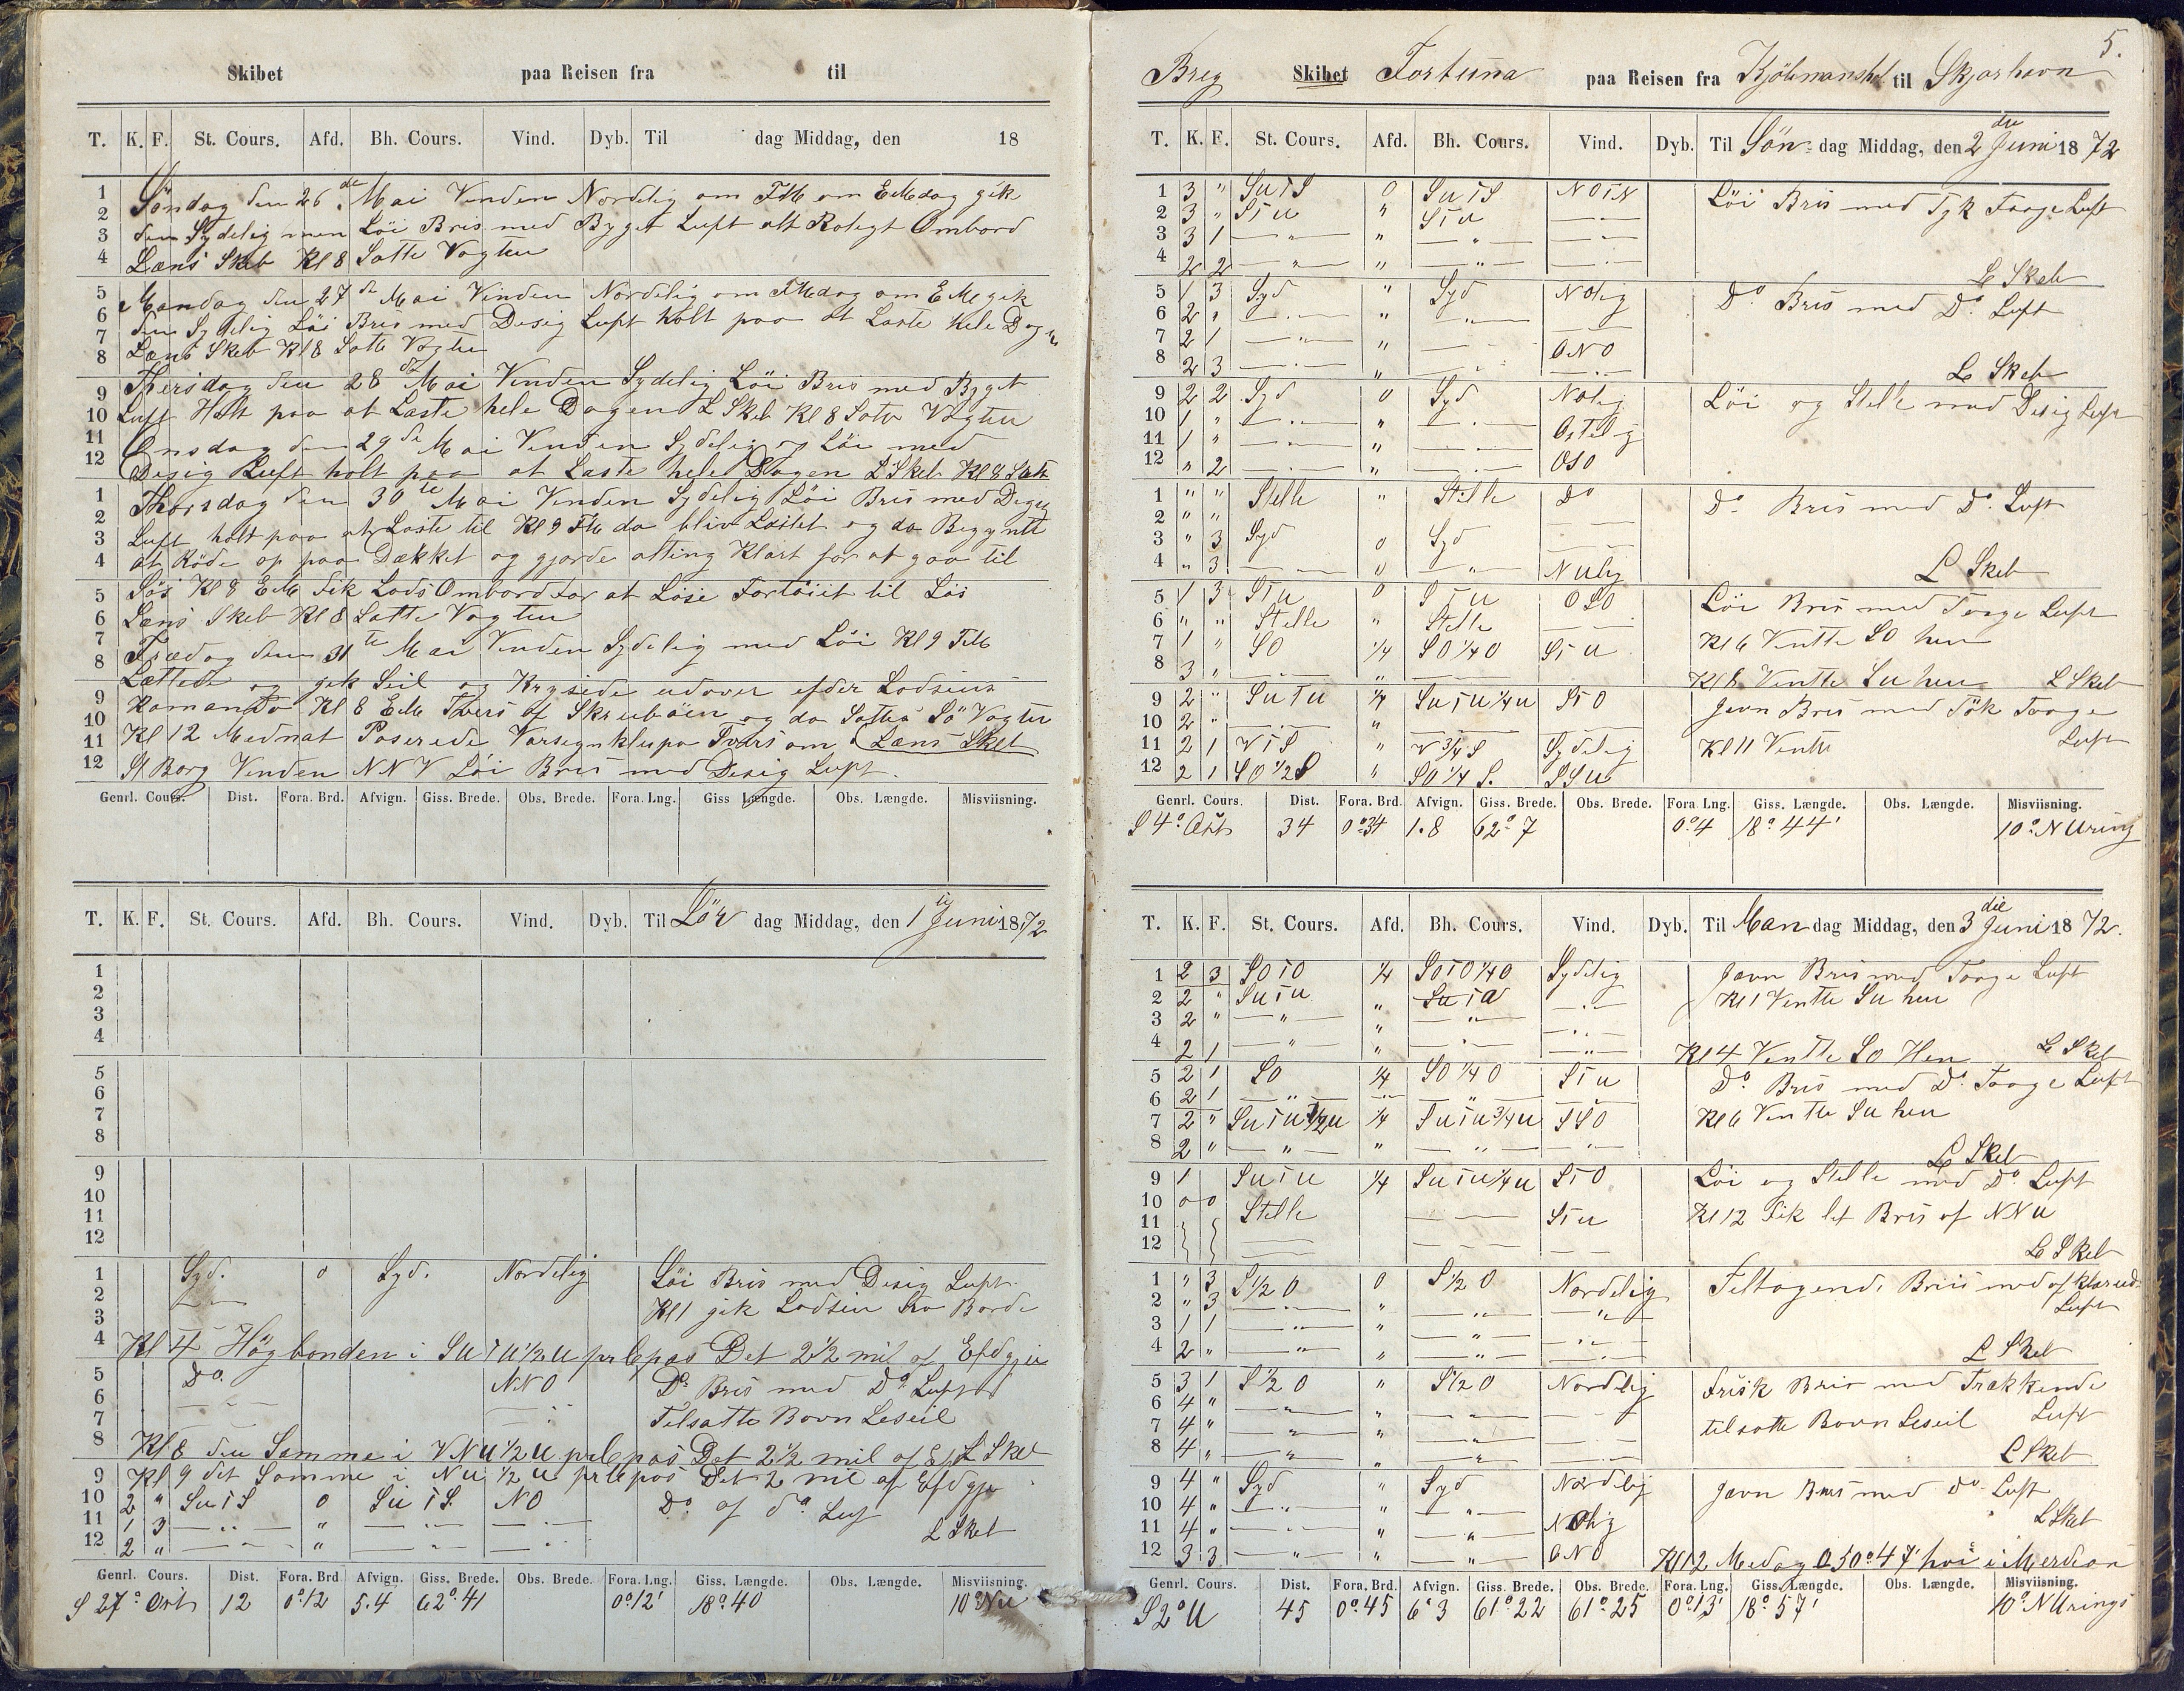 Skibet paa Reisen fra til
T. K. F. St. Cours. Afd. Bh. Cours. Vind. Dyb. Til dag Middag, den 18
Söndag den 26 de Mai Vinden Nordelig om FM om EMdag gik
den Sydelig men Löi Bris med Byget Luft alt Roligt Ombord
Læns Skeb Kl 8 Satte Vagten
Mandag den 27 de Mai Vinden Nordelig om FMdag om EM gik
den Sydelig Löi Bris med Desig Luft holt paa at Laste hele Dagn
Læns Skeb Kl 8 Satte Vagten
Thersdag den 28 de Mai Vinden Sydelig Löi Bris med Byget
Luft Holt paa at Laste hele Dagen L Skeb Kl 8 Satte Vagten
Onsdag den 29 de Mai Vinden Sydelig og Löi med
Desig Luft holt paa at Laste hele Dagen L Skeb Kl 8 Satte
Thorsdag den 30 te Mai Vinden Sydelig Löi Bris med Desig
Luft holt paa at Laste til Kl 9 FM da bliv Lastet og da Begyntt
at Röde op paa Dækket og gjorde alting Klart for at gaa til
Söis Kl 8 EM Fik Lods Ombord for at Löse Fortöiet til Löi
Læns Skeb Kl 8 Satte Vagten
Frædag den 31 te Mai Vinden Sydelig med Löi Kl 9 FM
Lættede og gik Seil og Krysede udover efder Lodsens
Komando Kl 8 EM Tvers af Skruböen og da Sattes Sö Vagter
Kl 12 Mednat Paserede Tvers om Læns Skeb
St Borg Vinden NNV Löi Bris med Desig Luft.
Genrl. Cours. Dist. Fora. Brd. Afvign. Giss. Brede. Obs. Brede. Fora. Lng. Giss Længde. Obs. Længde. Misviisning.
T. K. F. St. Cours. Afd. Bh. Cours. Vind. Dyb. Til Lör dag Middag, den 1 Juni 1872
1
2
3
4
5
6
7
8
9
10
11
12
1 Syd. 0 Syd. Nordelig Löi Bris med Desig Luft
2 Kl 1 gik Lodsen fra Borde
3
4 Kl 4 Högbonden i SuTu 1/2 u prCpas Det 2 1/2 mil af Efdgjis
5 Do. NNO Do Bris med Do Luft
6
7 Telsatte Bovn Leseil
8 Kl 8 den Samme i VNU 1/2 U prCpas Det 2 1/2 mil af Ef L Skeb
9 Kl 9 det Samme i Nu 1/2 u prCpas Det 2 mil af Efdgjis
10 2 " SuiS 0 SuiS NO Do af do Luf
11 1 3 " L Skeb
12 2 " "
Genrl. Cours. Dist. Fora. Brd Afvign. Giss. Brede. Obs. Brede. Fora. Lng. Giss. Længde. Obs. Længde. Misviisning.
S 27° Ost 12 0°12 5.4 62°.41 0°12' 18°.40 10° Nu
5.
Breg Skibet Fortuna paa Reisen fra til Skjarhavn
T. K. F. St. Cours. Afd. Bh. Cours. Vind. Dyb. Til Sön dag Middag, den 2 den Juni 1872
1 3 " SuiS 0 SuiS NOiN Löi Bris med Tyk Taage Luft
2 3 " Siu " Siu
3 3 1 " " "
4 2 2 " " " L Skeb
5 1 3 Syd " Syd NOlig Do. Bris med Do. Luft
6 2 "
7 2 1 " "
8 2 3 " ONO L Skeb
9 2 2 Syd 0 Syd NOlig Löi og Stelle med Desig Luft
10 1 " "
11 1 " " Ostelig
12 " 2 " OSO
1 " " Stelle " Stille Do Do. Bris med Do. Luft
2 " "
3 " 3 Syd 0 Syd
4 " 3 0 " NUlig L Skeb
5 1 3 Siu 0 Siu OSO Löi Bris med Taage Luft
6 " " Stelle " Stelle Kl 6 Ventte SO hen
7 1 " SO 1/4 SO 1/4 O Siu
8 3 " " Kl 8 Ventte Su hen L Skeb
9 2 " SuTu 1/4 Suiu 1/4 u SiO Jevn Bris med Tök Taage
10 2 " " Luft
11 2 1 ViS " V 3/4 S Sydelig Kl 11 Ventte
12 2 1 SO 1/2 S " SO 1/4 S. SSu
Genrl. Cours. Dist. Fora. Brd. Afvign. Giss. Brede. Obs. Brede. Fora. Lng. Giss. Længde. Obs. Længde. Misviisning.
S 4° Ost 34 0°34 1.8 62°7 0°.4 18°44' 10° NUring
T. K. F. St. Cours. Afd. Bh. Cours. Vind. Dyb. Til Man dag Middag, den 3 die Juni 1872.
1 2 3 SOiO 1/4 SOiO 1/4 O Sydelig Jævn Bris med Taage Luft
2 2 " Suiu " Suiu Kl 1 Ventte Su hen
3 2 " " " "
4 2 1 " " " Kl 4 Ventte SO Hen L Skeb
5 2 1 SO 1/4 SO 1/4 O Siu Do. Bris med Do. Taage Luft
6 2 1 "
7 2 " Suiu 1/2 u 1/4 Suiu 3/4 u SSO Kl 6 Ventte Su hen
8 2 " " " " L Skeb
9 1 Suiu 1/4 Suiu 1/4 u SiO Löi og Stelle med Do Luft
10 0 0 Stelle Siu Kl 12 Fik let Bris af NNU
11
12 L Skeb
1 " 3 S 1/2 O 0 S 1/2 O Nordelig Teltagende Bris med af klarend
2 " 3 " " " Luft
3 1 1 " " "
4 2 " " " " L Skeb
5 3 1 S 1/2 O " S 1/2 O Nordlig Frisk Bris med Trækkende
6 4 " " " Luft
7 4 " " " tilsatte Bovn Leseil
8 4 " " " L Skeb
9 4 " Syd " Syd Nordlig Jævn Bris med Do Luft
10 4 " " " L Skeb
11 4 " " " NOlig
12 3 3 " " " ONO Kl 12 Medag O 50°47' hoi i Merdian
Genrl. Cours. Dist. Fora. Brd. Afvign. Giss. Brede. Obs. Brede. Fora. Lng. Giss. Længde. Obs. Længde. Misviisning.
S 2° U 45 0°.45 6'3 61°22 61°25 0°13' 18°57' 10° NUrings